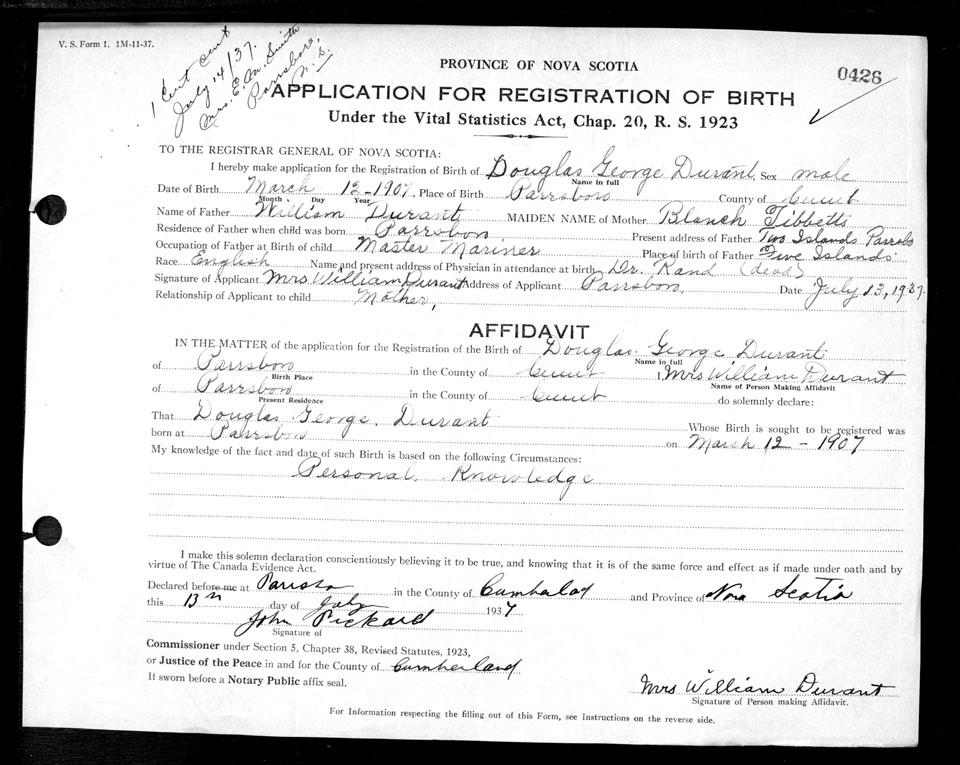 V. S. Form 1. 1M-11-37.
1 Cert sent
July 14/37.
Mrs. E. M. Smith
Parrsboro,
N. S.
0426
PROVINCE OF NOVA SCOTIA
APPLICATION FOR REGISTRATION OF BIRTH
Under the Vital Statistics Act, Chap. 20, R. S. 1923
TO THE REGISTRAR GENERAL OF NOVA SCOTIA:
I hereby make application for the Registration of Birth of Douglas George Durant Sex male
Name in full
Date of Birth March 12-1907. Place of Birth Parrsboro County of Cumb
Month Day Year
Name of Father William Durant MAIDEN NAME of Mother Blanch Tibbetts
Residence of Father when child was born Parrsboro, Present address of Father Two Islands Parrsbo
Occupation of Father at Birth of child Master Mariner Place of birth of Father Five Islands
Race English Name and present address of Physician in attendance at birth Dr. Rand (dead)
Signature of Applicant Mrs William Durant Address of Applicant Parrsboro. Date July 13, 1937.
Relationship of Applicant to child Mother,
AFFIDAVIT
IN THE MATTER of the application for the Registration of the Birth of Douglas George Durant
Name in full
of Parrsboro in the County of Cumb I, Mrs William Durant
Birth Place Name of Person Making Affidavit
of Parrsboro in the County of Cumb do solemnly declare:
Present Residence
That Douglas George Durant Whose Birth is sought to be registered was
born at Parrsboro on March 12 - 1907
My knowledge of the fact and date of such Birth is based on the following Circumstances:
Personal Knowledge
I make this solemn declaration conscientiously believing it to be true, and knowing that it is of the same force and effect as if made under oath and by
virtue of The Canada Evidence Act.
Declared before me at Parrsboro in the County of Cumberland and Province of Nova Scotia
this 13th day of July 1937
John Pickard
Signature of
Commissioner under Section 5, Chapter 38, Revised Statutes, 1923,
or Justice of the Peace in and for the County of Cumberland
If sworn before a Notary Public affix seal.
Mrs William Durant
Signature of Person making Affidavit.
For Information respecting the filling out of this Form, see Instructions on the reverse side.